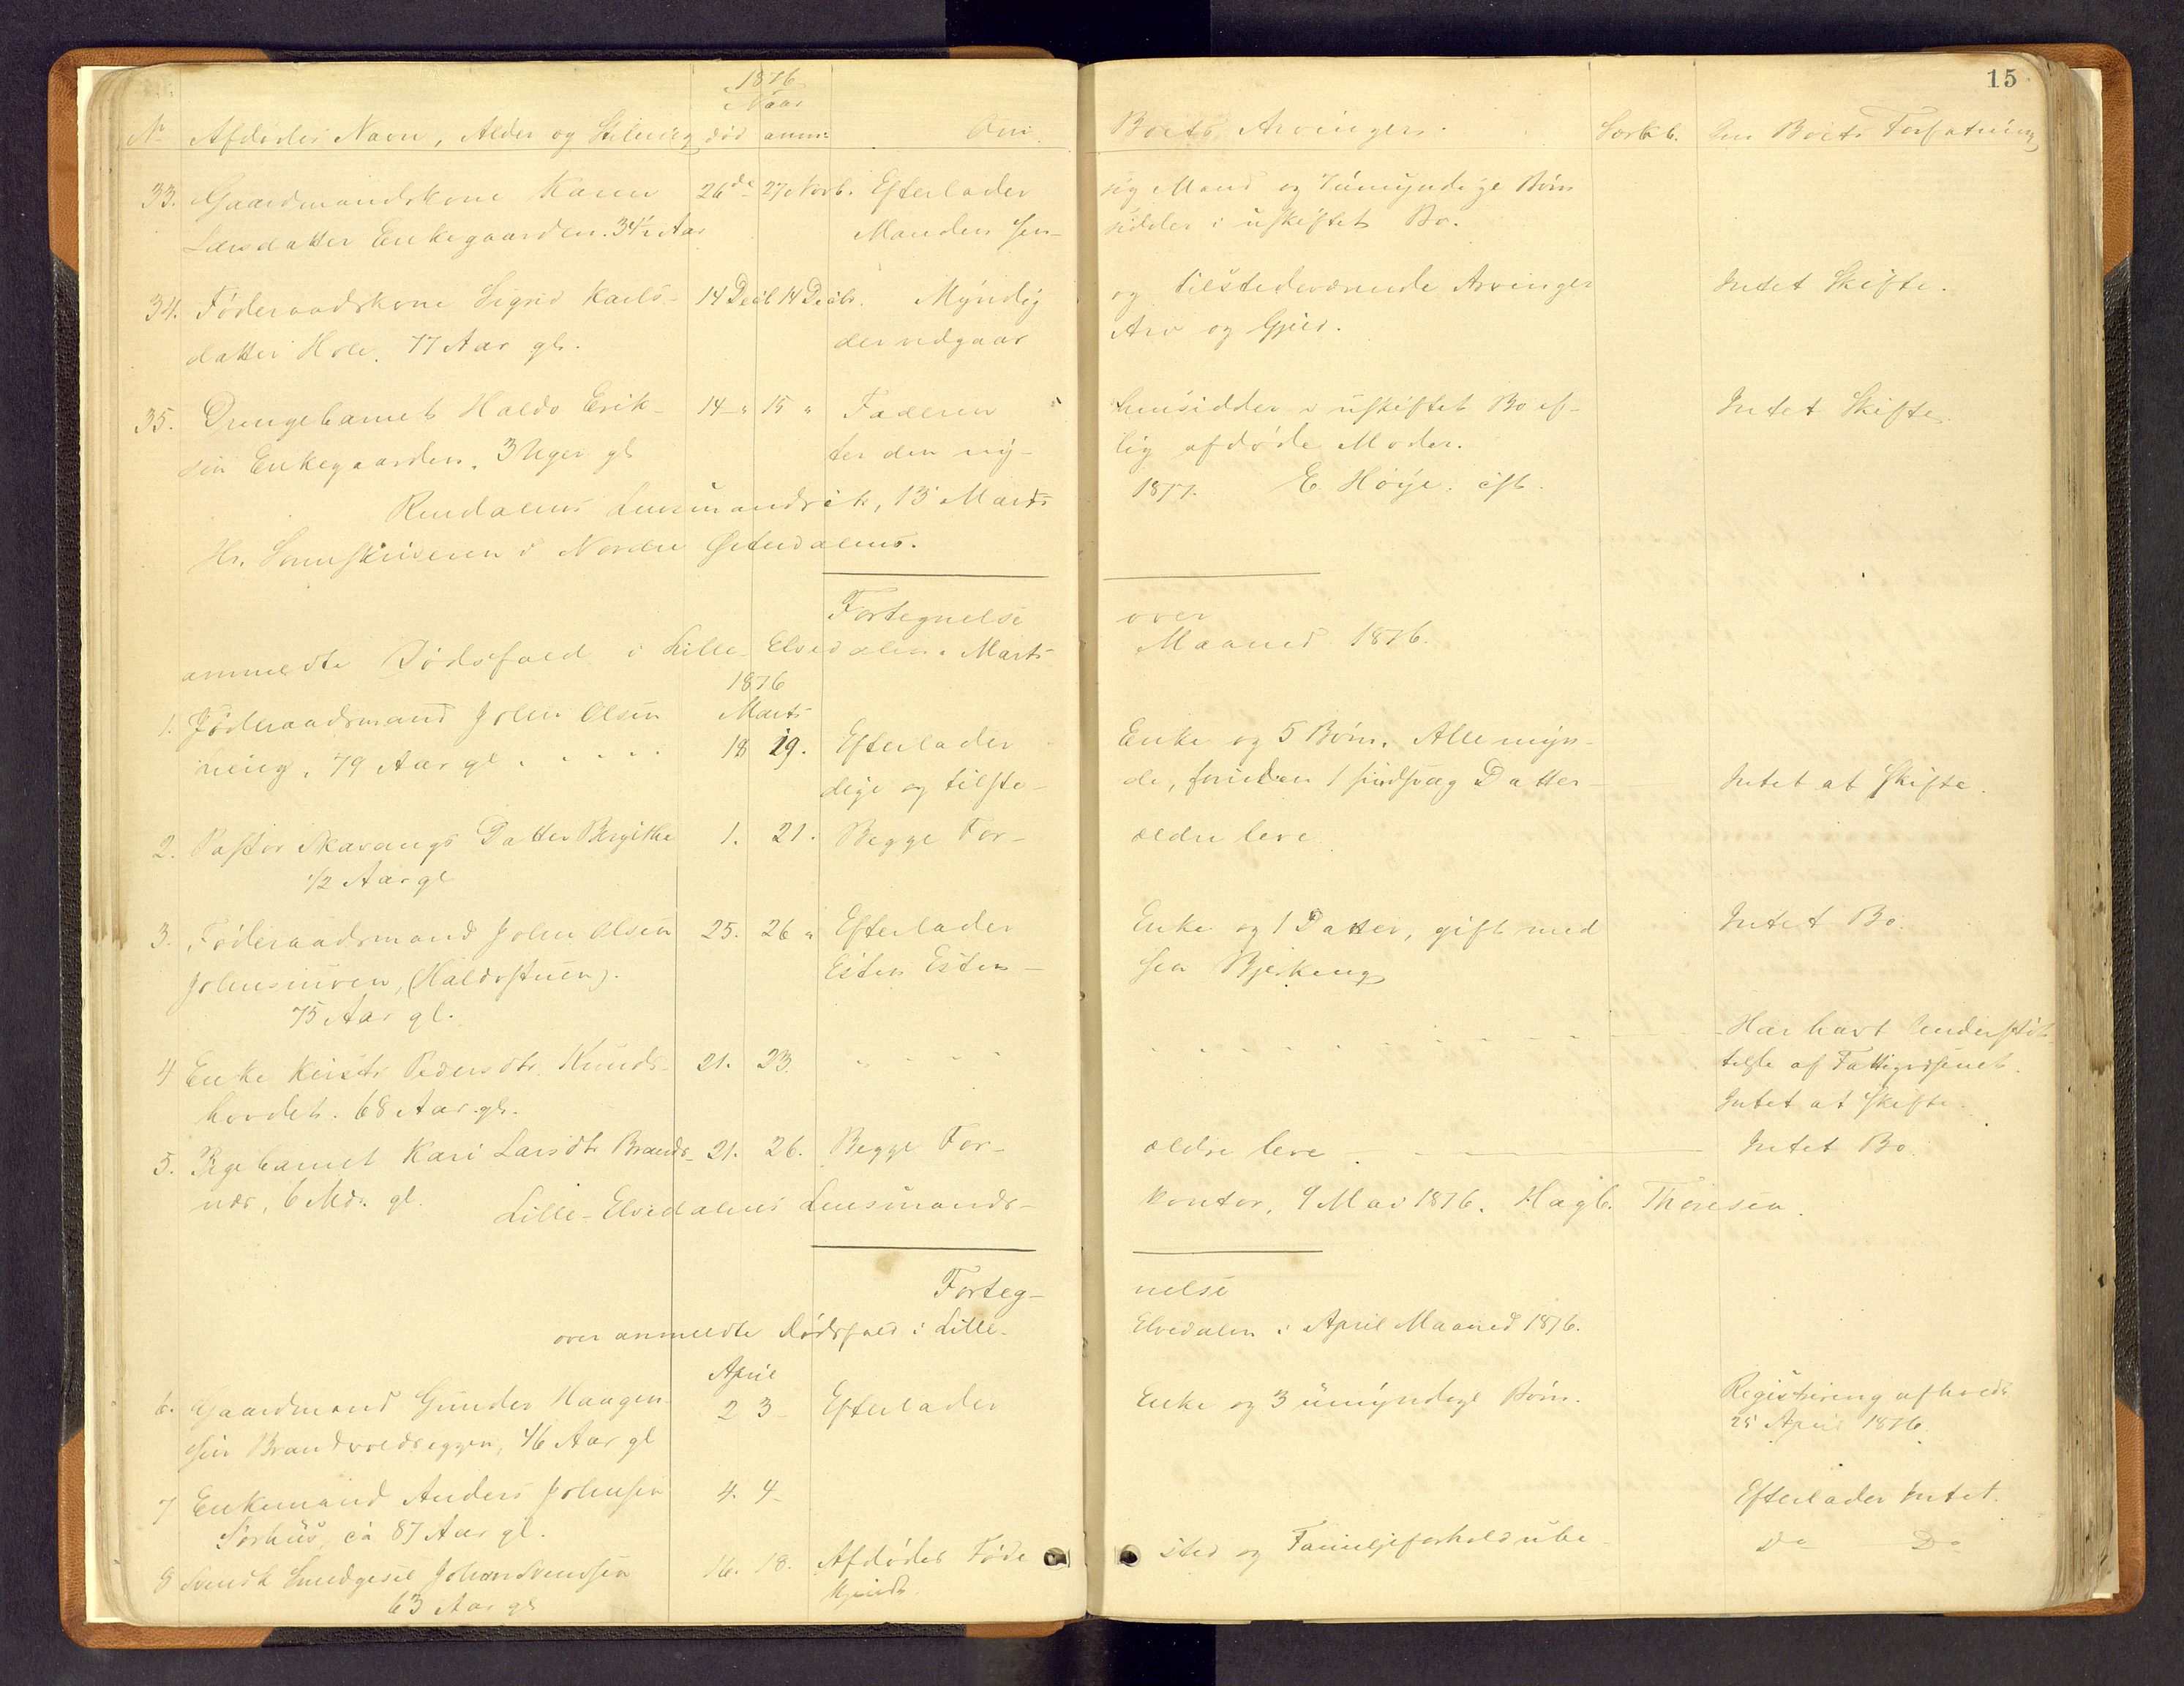 15
1876
Naar
No Afdødes Navn, Alder og Stilling død anm: Om Boets Arvinger. Om Boets Forfatning
33. Gaardmandskone Karen 26de 27 Novb. Efterlader sig Mand og 7 umyndige Børn
Larsdatter Enkegaarden. 34½ Aar Manden sidder i uskiftet Bo.
34. Føderaadskone Sigrid Karls- 14 Decb 14 Decbr. Myndig og tilstedeværende Arvinger Intet Skifte.
datter Hole. 77 Aar gl. der vedgaar Arv og Gjeld.
35. Drengebarnet Haldo Erik- 14 " 15 " Faderen hensidder i uskiftet Bo ef- Intet Skifte.
sen Enkegaarden. 3 Uger gl ter den ny- lig afdøde Moder.
Rendalens Lensmandsk., 13 Marts 1877. E Høye. cst.
Hr. Sorenskriveren i Nordre Østerdalens.
Fortegnelse over
anmeldte Dødsfald i Lille Elvedalen i Marts Maaned 1876.
1876
Marts
1. Føderaadsmand John Olsen
79 Aar gl. 18 19. Efterlader Enke og 5 Børn. Alle myn-
dige og tilste- de, foruden 1 sindssvag Datter Intet at skifte.
2. Pastor Skavangs Datter Bergithe 1. 21. Begge For- ældre leve.
1/2 Aar gl
3. Føderaadsmand John Olsen 25. 26 " Efterlader Enke og 1 Datter, gift med Intet Bo.
Johnsmoen, (Haldostuen). Esten Esten- sen Bjerkeng
75 Aar gl.
Har havt Understøt-
4 Enke Kirsti Pedersdtr. 21. 23. telse af Fattigvæsenet.
68 Aar gl. Intet at skifte.
5. Pigebarnet Kari Larsdtr Brands- 21. 26. Begge For- ældre leve. Intet Bo.
næs, 6 Mdr. gl.
Lille-Elvedalens Lensmands- kontor, 9 Mai 1876. Hagb. Thoresen.
Forteg- nelse
over anmeldte Dødsfald i Lille- Elvedalen i April Maaned 1876.
April
6. Gaardmand Gunder Haagen- 2 3 Efterlader Enke og 3 umyndige Børn. Registrering afholdt
sen Brandvoldseggen, 46 Aar gl 25 April 1876.
7 Enkemand Anders Johnsen 4. 4 Efterlader Intet.
Sørhuus, ca 87 Aar gl.
8 Svensk Smedgesel Johan Svendsen 16. 18. Afdødes Føde sted og Familjeforhold ube- Do Do
63 Aar gl kjendt.